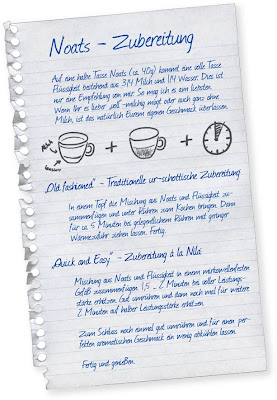 Noats - Zubereitung
Auf eine halbe Tasse Noats (ca. 40g) kommt eine volle Tasse
Flüssigkeit bestehend aus 3/4 Milch und 1/4 Wasser. Dies ist
nur eine Empfehlung von mir. So mag ich es am liebsten.
Wenn Ihr es lieber „voll“-milchig mögt oder auch ganz ohne
Milch, ist das natürlich Eurem eigenen Geschmack überlassen.
Milch
Wasser
+ +
„Old fashioned“ - Traditionelle ur-schottische Zubereitung
In einem Topf die Mischung aus Noats und Flüssigkeit zu-
sammenfügen und unter Rühren zum Kochen bringen. Dann
für ca. 5 Minuten bei gelegentlichem Rühren mit geringer
Wärmezufuhr ziehen lassen. Fertig.
„Quick and Easy“ - Zubereitung à la Nila
Mischung aus Noats und Flüssigkeit in einem mikrowellenfesten
Gefäß zusammenfügen. 1,5 - 2 Minuten bei voller Leistungs-
stärke erhitzen. Gut umrühren und dann noch mal für weitere
2 Minuten auf halber Leistungsstärke erhitzen.
Zum Schluss noch einmal gut umrühren und für einen per-
fekten aromatischen Geschmack ein wenig abkühlen lassen.
Fertig und genießen.